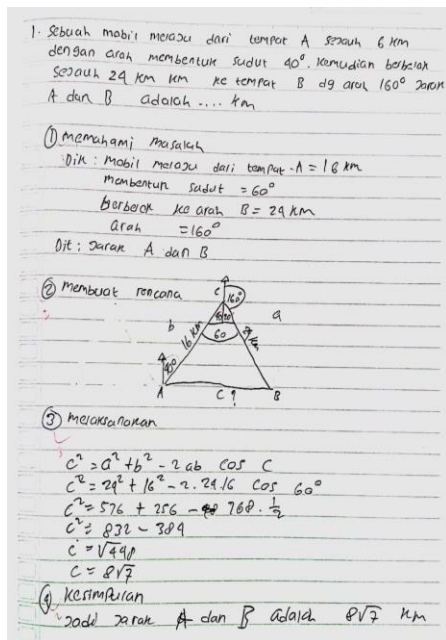 1. Sebuah mobil melaju dari tempat A sejauh 6 km
dengan arah membentuk sudut 40°. kemudian berbelok
sejauh 24 km km ke tempat B dg arah 160° jarak
A dan B adalah .... km
① memahami masalah
Dik : mobil melaju dari tempat A = 16 km
membentuk sudut = 60°
berbelok ke arah B = 24 km
arah = 160°
Dit : jarak A dan B
② membuat rencana
C 160°
b a
16 km 60 24 km
40°
A C ? B
③ melaksanakan
c² = a² + b² - 2 ab cos C
c² = 24² + 16² - 2. 24.16 cos 60°
c² = 576 + 256 - 768 . 1/2
c² = 832 - 384
c = √448
c = 8√7
④ kesimpulan
Jadi jarak A dan B adalah 8√7 km